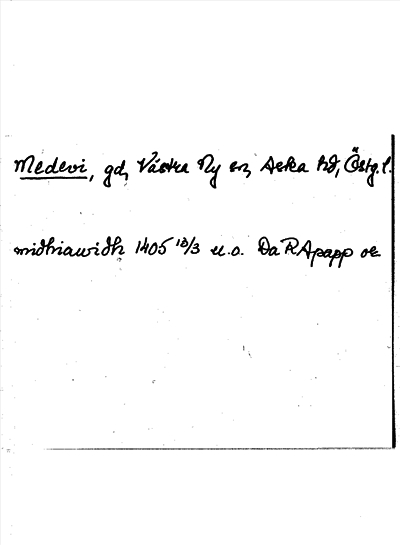 Medevi, gd, Västra Ny sn, Aska hd, Östg.l.
midhiawidh 1405 18/3 u.o. Da RApapp or